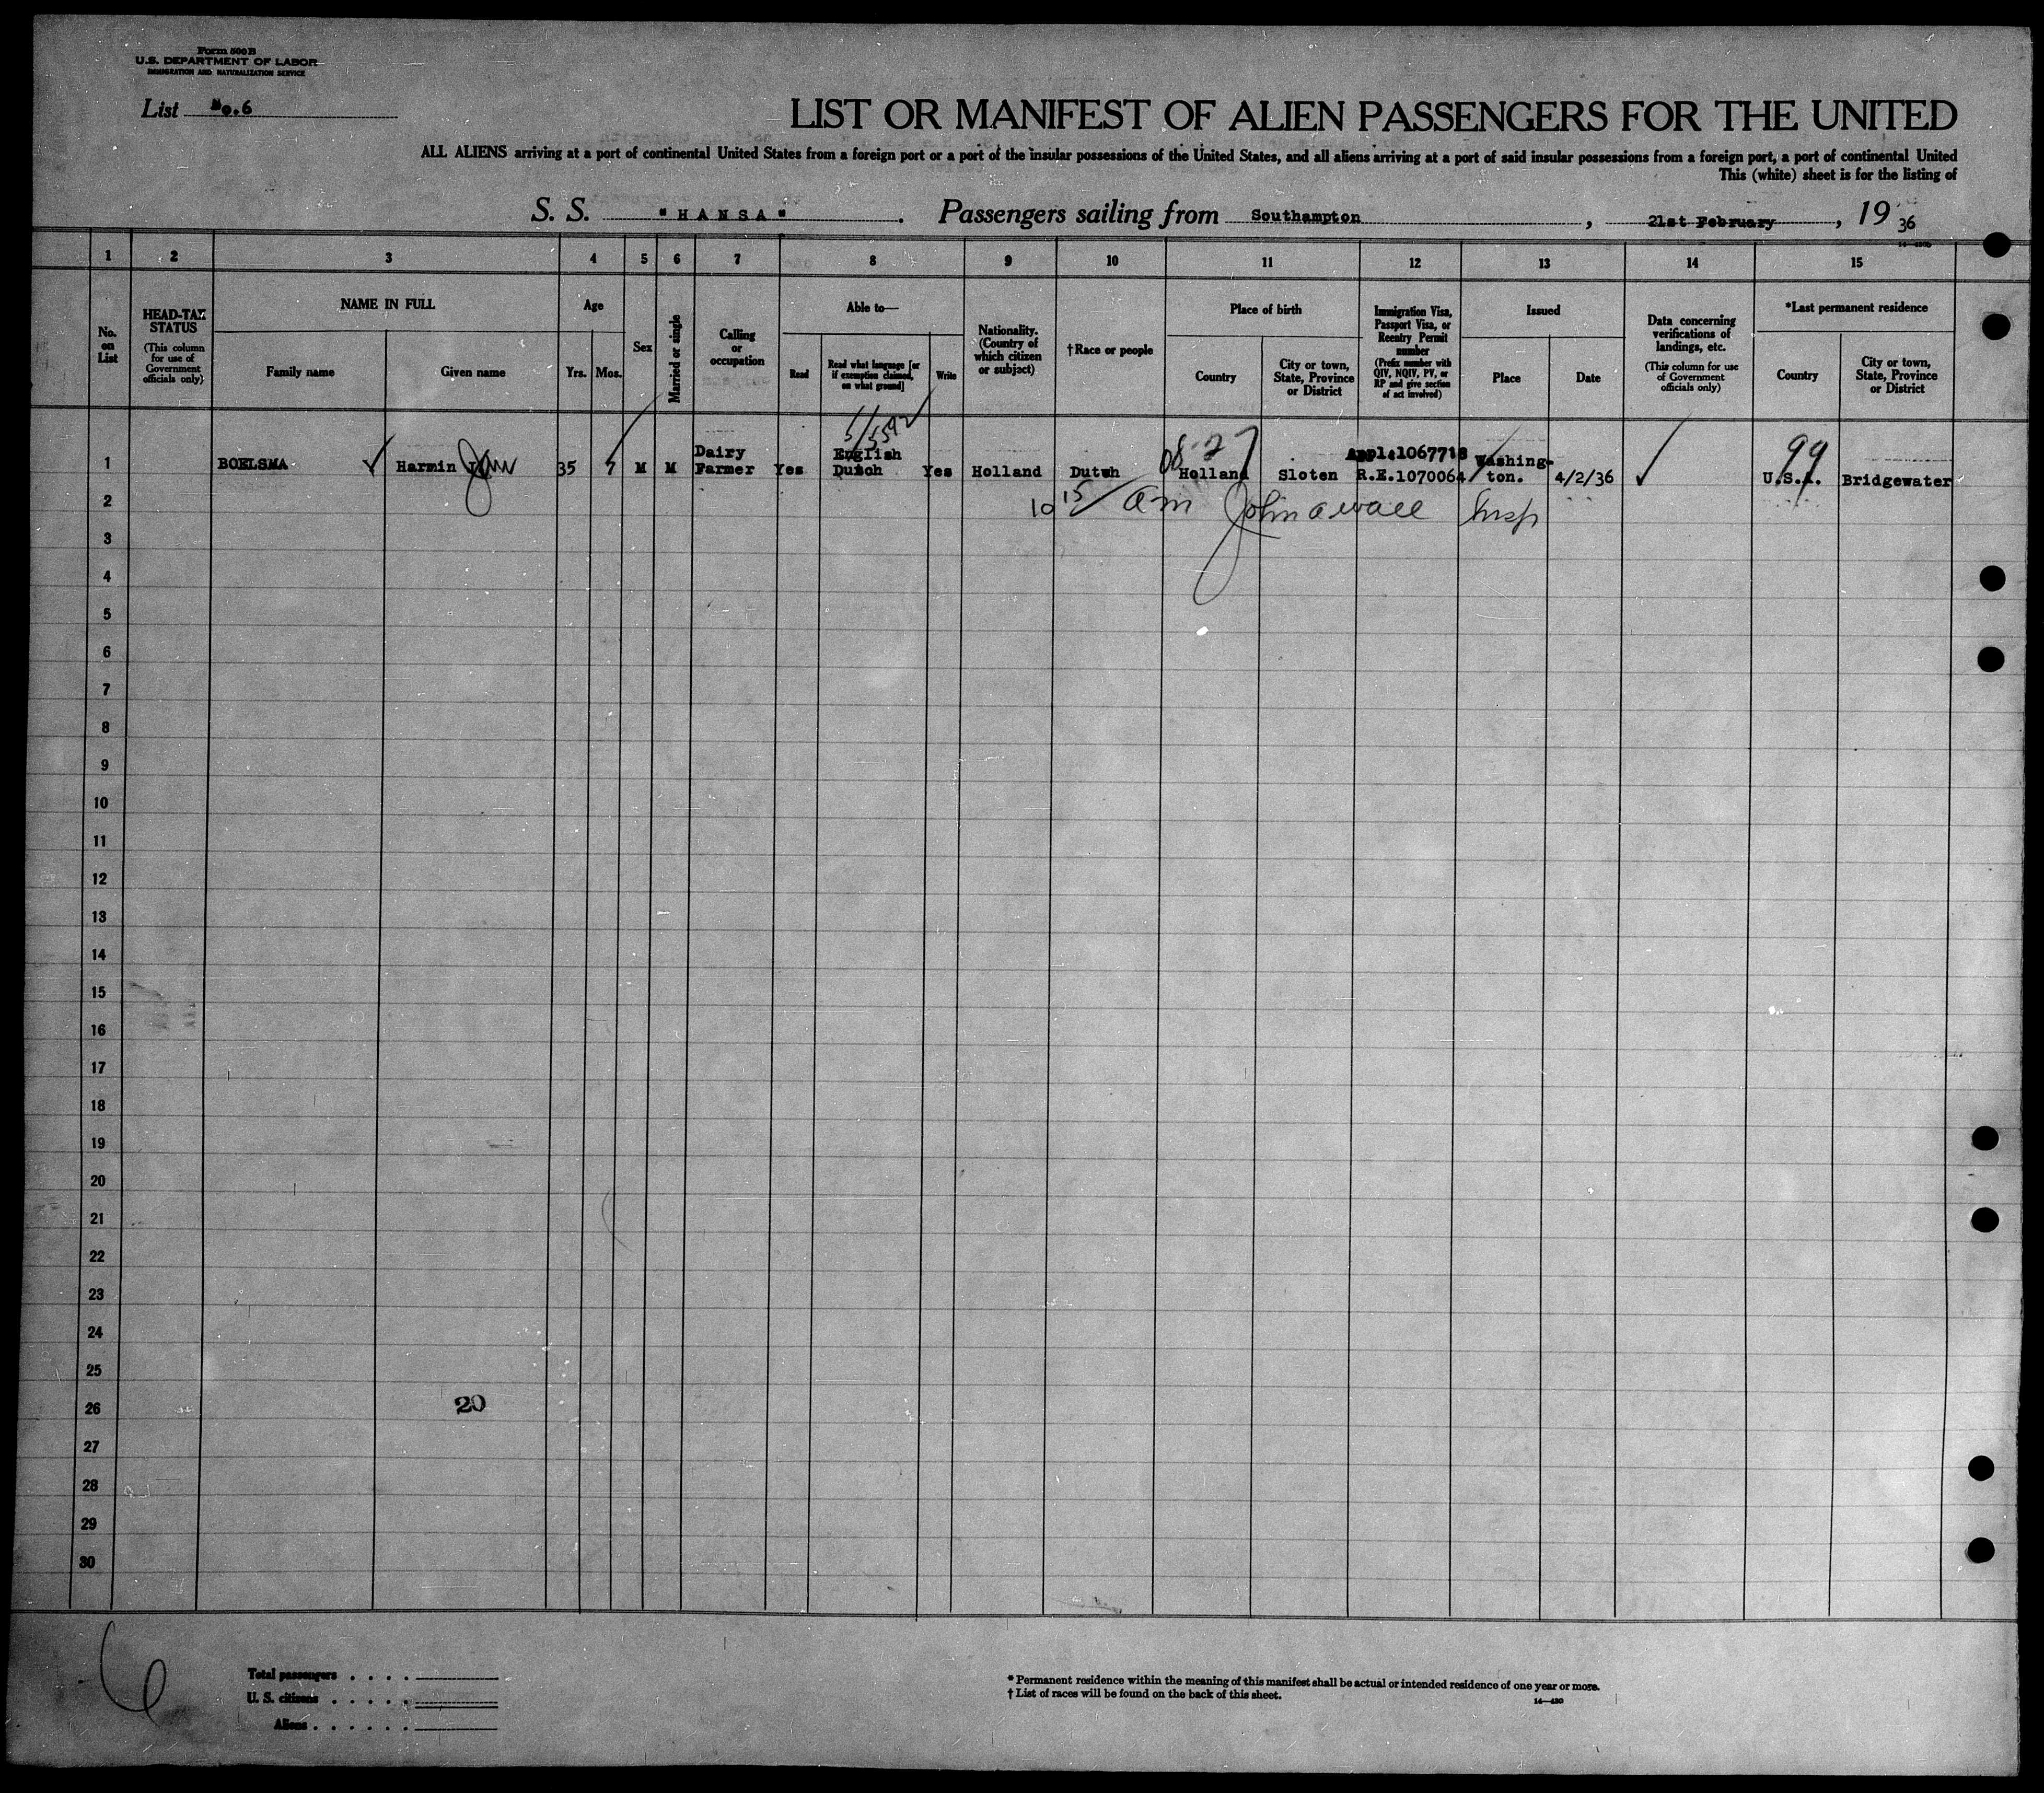 Form 500 B
U.S. DEPARTMENT OF LABOR
IMMIGRATION AND NATURALIZATION SERVICE
List No.6
LIST OR MANIFEST OF ALIEN PASSENGERS FOR THE UNITED
ALL ALIENS arriving at a port of continental United States from a foreign port or a port of the insular possessions of the United States, and all aliens arriving at a port of said insular possessions from a foreign port, a port of continental United
This (white) sheet is for the listing of
S. S. "HANSA". Passengers sailing from Southampton, 21st February, 19 36
1 2 3 4 5 6 7 8 9 10 11 12 13 14 15
No. on List
HEAD-TAX STATUS
(This column for use of Government officials only)
NAME IN FULL
Family name
Given name
Age
Yrs.
Mos.
Sex
Married or single
Calling or occupation
Able to—
Read
Read what language [or if exemption claimed, on what ground]
Write
Nationality. (Country of which citizen or subject)
†Race or people
Place of birth
Country
City or town, State, Province or District
Immigration Visa, Passport Visa, or Reentry Permit number
(Prefix number with QIV, NQIV, PV, or RP and give section of act involved)
Issued
Place
Date
Data concerning verifications of landings, etc.
(This column for use of Government officials only)
*Last permanent residence
Country
City or town, State, Province or District
5/5592
08-27
99
1 BOELSMA Harmin 35 7 M M Dairy Farmer Yes English Dutch Yes Holland Dutch Holland Sloten Appl.1067718 R.E.1070064 Washington. 4/2/36 U.S.A. Bridgewater
2 10 15 am John a wall Insp
3
4
5
6
7
8
9
10
11
12
13
14
15
16
17
18
19
20
21
22
23
24
25
26
20
27
28
29
30
6
Total passengers . . . .
U. S. citizens . . . . .
Aliens . . . . . .
* Permanent residence within the meaning of this manifest shall be actual or intended residence of one year or more.
† List of races will be found on the back of this sheet.
14—430